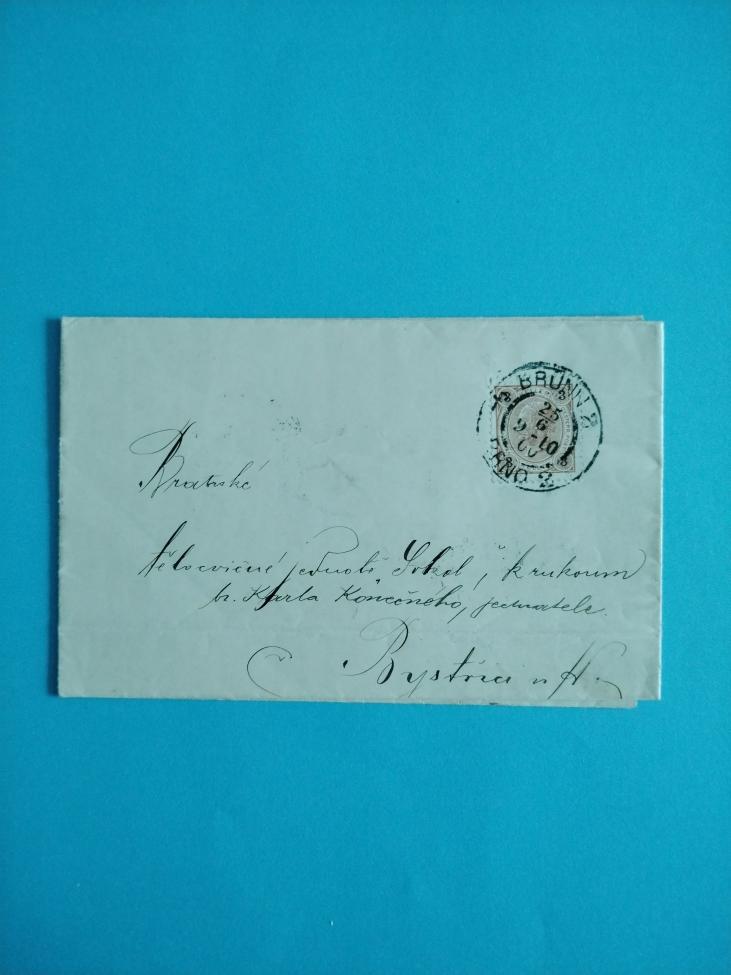 BRÜNN 2
25
6
9-10
00
BRNO 2
Bratrské
tělocvičné jednotě Sokol, k rukoum
br. Karla Konečného, jednatele.
Bystřici n H.